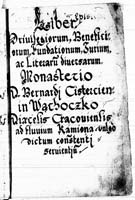 Liber
Privilegiorum, Beneficio
rum, Fundationum, Jurium,
ac Literarū diversarum
Monasterio
D. Bernardi Cistercien
in Wąchoczko
Diæcesis Cracoviensis
ad fluvium Kamiona
dictum constenti
servientiū